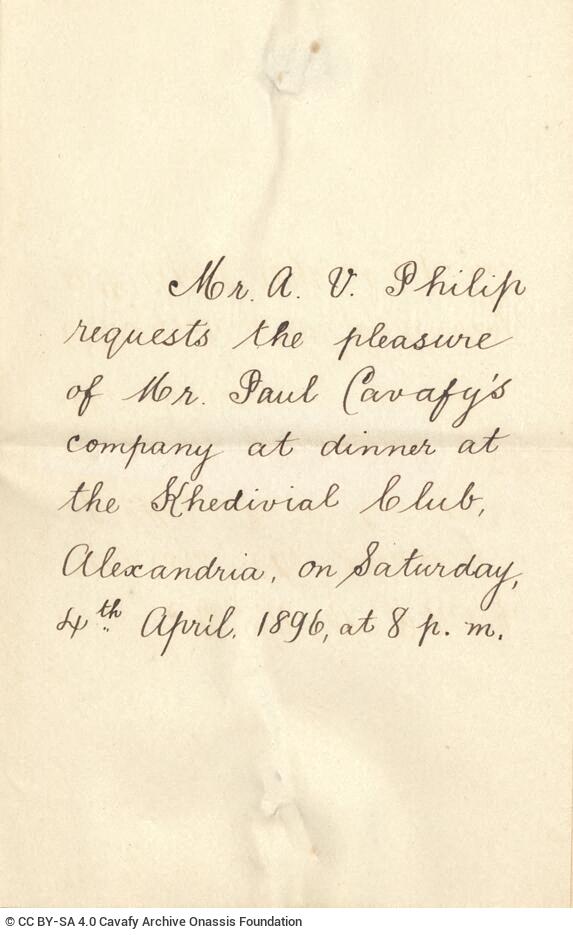 Mr. A. V. Philip
requests the pleasure
of Mr. Paul Cavafy's
company at dinner at
the Khedivial Club,
Alexandria, on Saturday,
4th April. 1896, at 8 p. m.
© CC BY-SA 4.0 Cavafy Archive Onassis Foundation